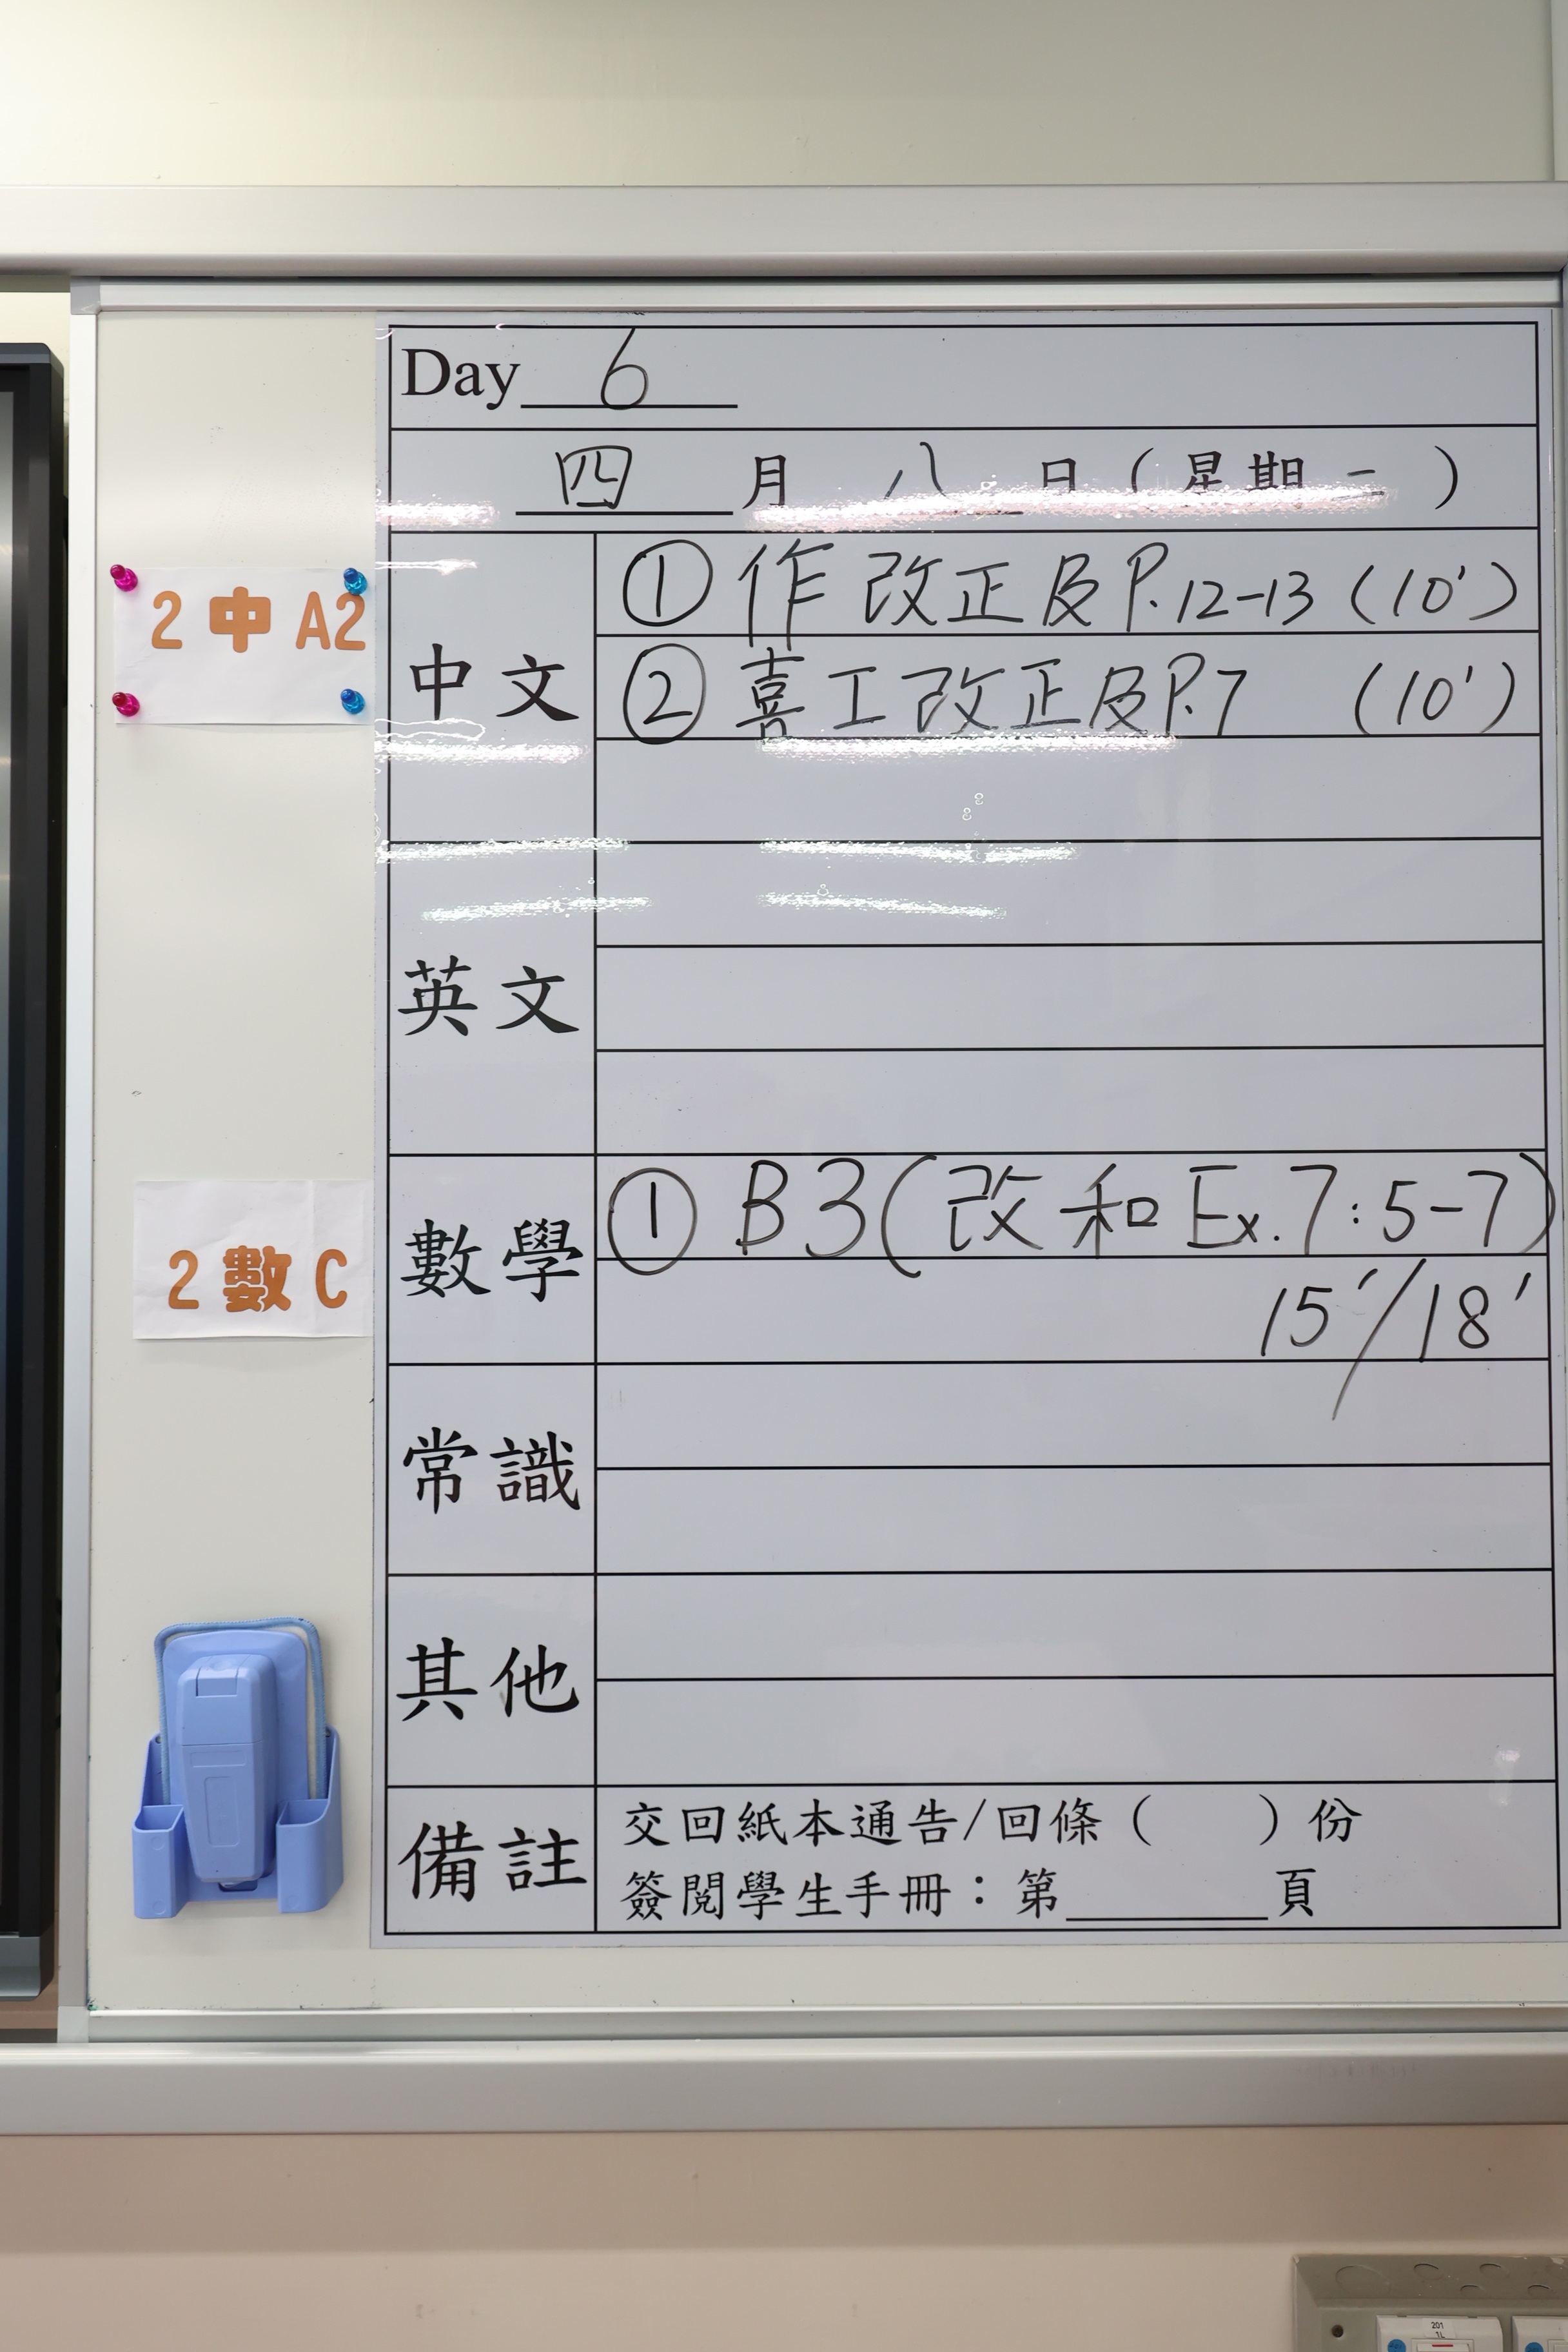 Day 6
四 月 八 日 ( 星期 一 )
2 中 A2
中文
① 作 改正及 P.12-13 (10')
② 喜工改正及P.7 (10')
英文
2 數 C
數學
① B3(改和 Ex.7:5-7)
15'/18'
常識
其他
備註
交回紙本通告/回條( )份
簽閱學生手冊:第 頁
201
1L